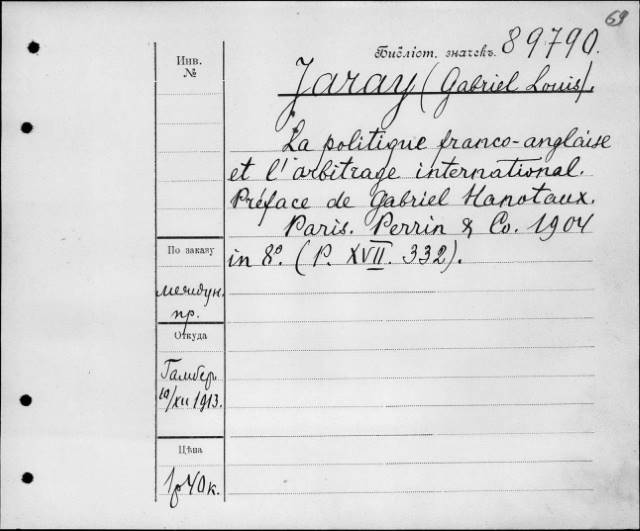 69
Библіот. значекъ. 89790.
Инв.
№
Jaray (Gabriel Louis).
La politique franco-anglaise
et l'arbitrage international.
Préface de Gabriel Hanotaux.
Paris. Perrin & Co. 1904
in 8º. (P. XVII. 332).
По заказу
междун.
пр.
Откуда
Гамбер
10/XII 1913.
Цѣна
1р 40к.